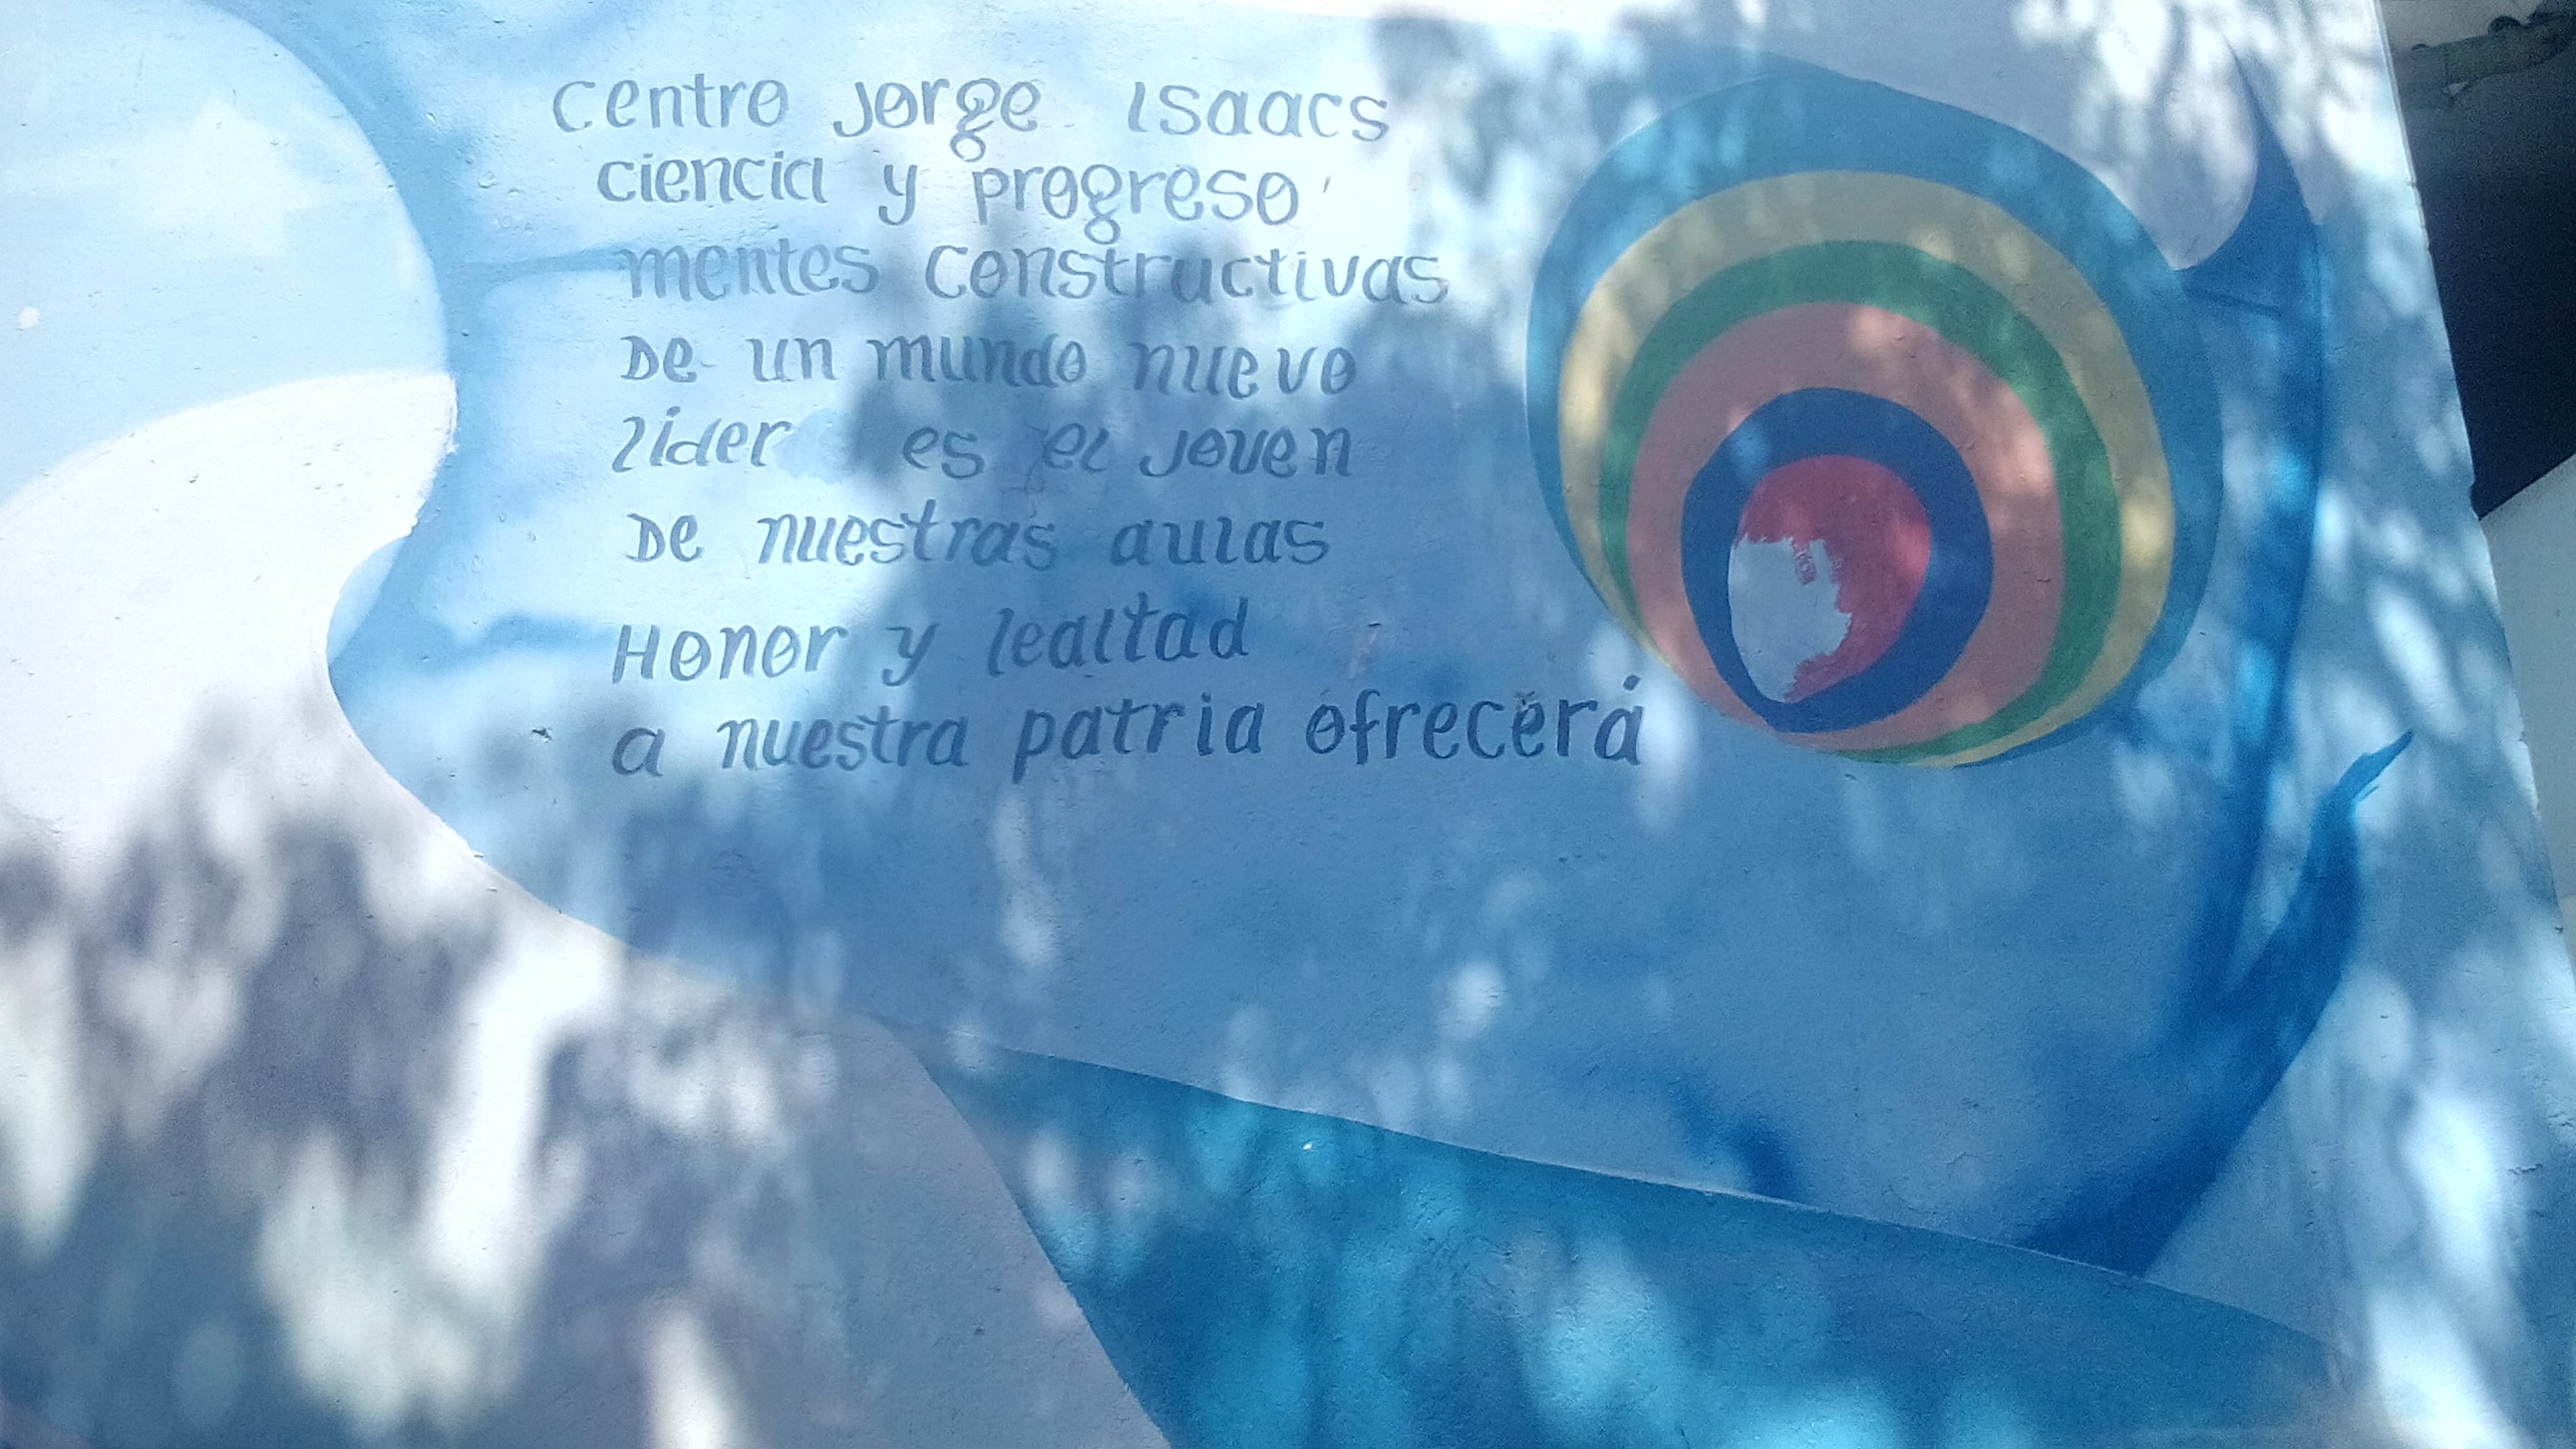 Centro Jorge Isaacs
ciencia y progreso
mentes constructivas
De un mundo nuevo
lider es el joven
De nuestras aulas
Honor y lealtad
a nuestra patria ofrecerá